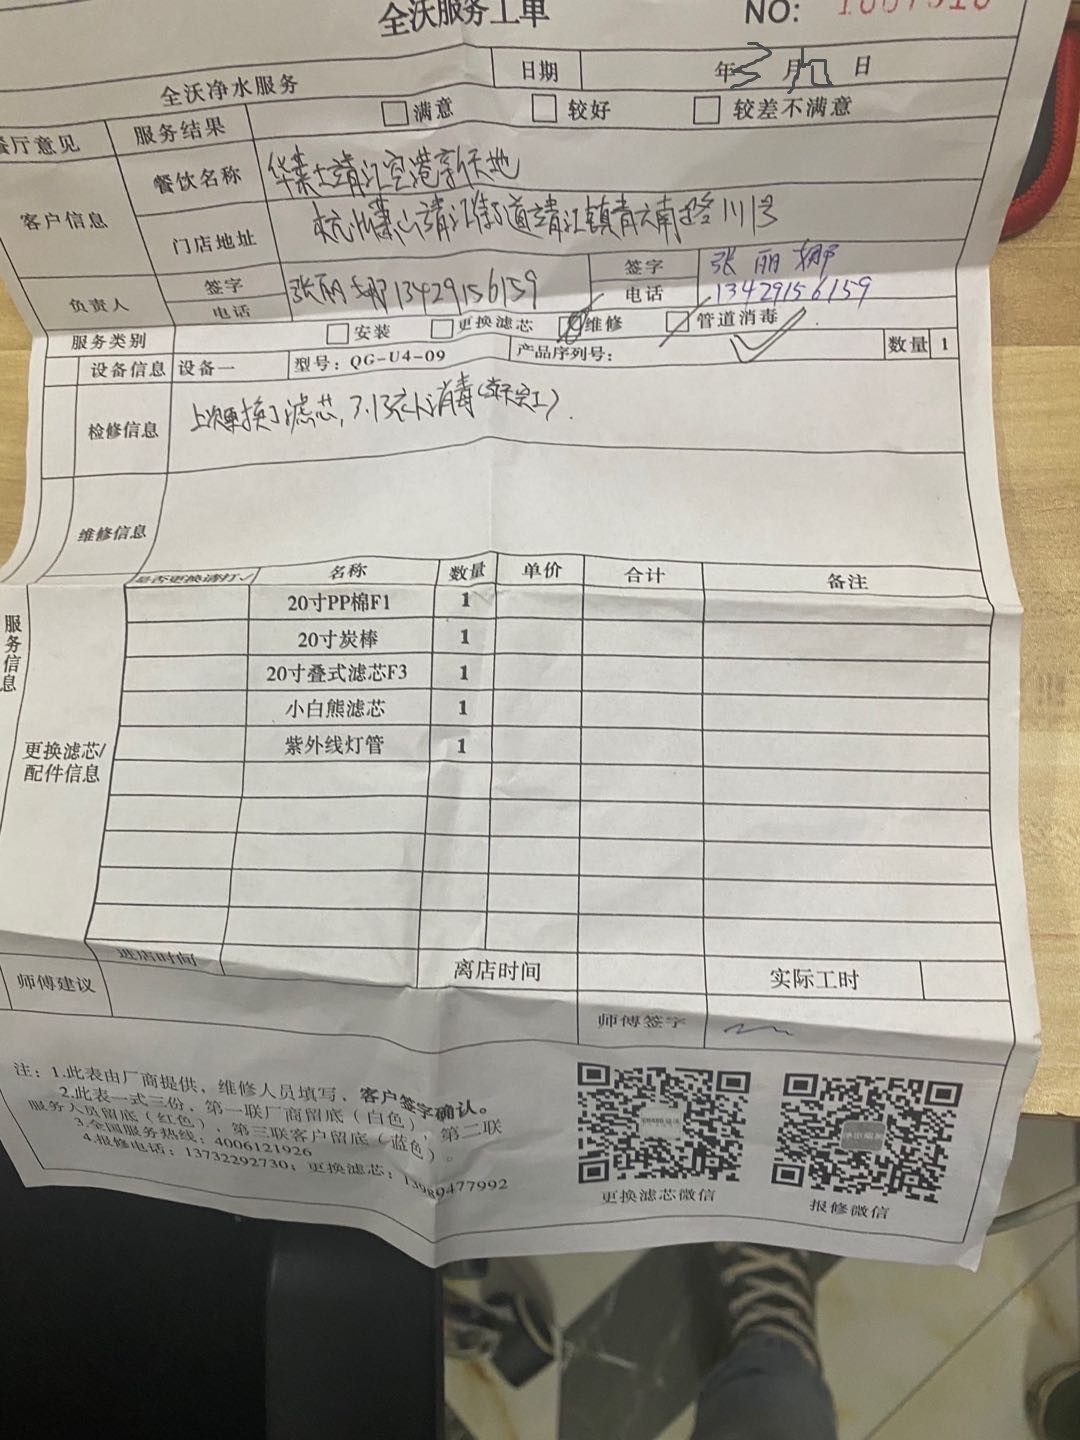 全沃服务工单 NO:
全沃净水服务 日期 年 月 日
餐厅意见 服务结果 满意 较好 较差不满意
客户信息 餐饮名称 华莱士靖江空港新天地
门店地址 杭州萧山靖江街道靖江镇青六南路 川号
负责人 签字 张丽娜 签字 张丽娜
电话 13429156159 电话 13429156159
服务类别 安装 更换滤芯 维修 管道消毒
设备信息 设备一 型号: QG-U4-09 产品序列号: 数量 1
检修信息 上次更换了滤芯, 消毒
维修信息
是否更换请打✓ 名称 数量 单价 合计 备注
服务信息
更换滤芯/配件信息
20寸PP棉F1 1
20寸炭棒 1
20寸叠式滤芯F3 1
小白熊滤芯 1
紫外线灯管 1
进店时间 离店时间 实际工时
师傅建议 师傅签字
注: 1.此表由厂商提供, 维修人员填写, 客户签字确认。
2.此表一式三份, 第一联厂商留底(白色), 第二联
服务人员留底(红色), 第三联客户留底(蓝色)。
3.全国服务热线: 4006121926
4.报修电话: 13732292730; 更换滤芯: 13989477992
更换滤芯微信 报修微信